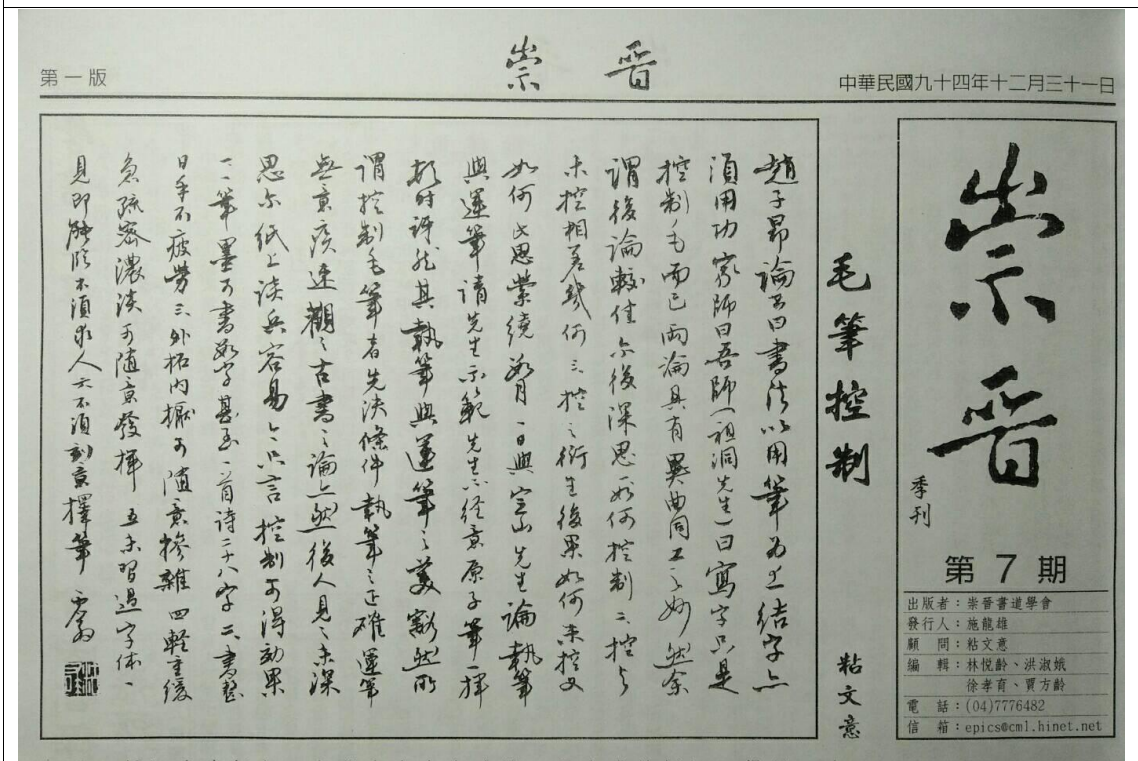 第一版
崇晉
中華民國九十四年十二月三十一日
崇晉
季刊
第7期
出版者：崇晉書道學會
發行人：施龍雄
顧　問：粘文意
編　輯：林悅齡、洪淑娥
徐孝育、賈方齡
電　話：(04)7776482
信　箱：epics@cm1.hinet.net
毛筆控制
粘文意
趙子昂論書曰書法以用筆為上結字亦
須用功家師曰吾師(祖洞先生)曰寫字只是
控制毛而已兩論具有異曲同工之妙然余
謂後論較佳亦後深思如何控制二控與
未控相差幾何三控之衍生後果如何未控又
如何此思縈繞數月一日與定山先生論執筆
與運筆請先生示範先生不經意原子筆一揮
頓時訝然其執筆與運筆之美豁然所
謂控制毛筆者先決條件執筆之正確運筆
無意疾速觀之古書之論亦然後人見之未深
思爾紙上談兵容易今只言控制可得効果
一一筆墨可書數字甚至一首詩二十八字二書整
日手不疲勞三外拓内擫可隨意摻雜四輕重緩
急疏密濃淡可隨意發揮五未習過字体一
見即能臨不須求人六不須刻意擇筆